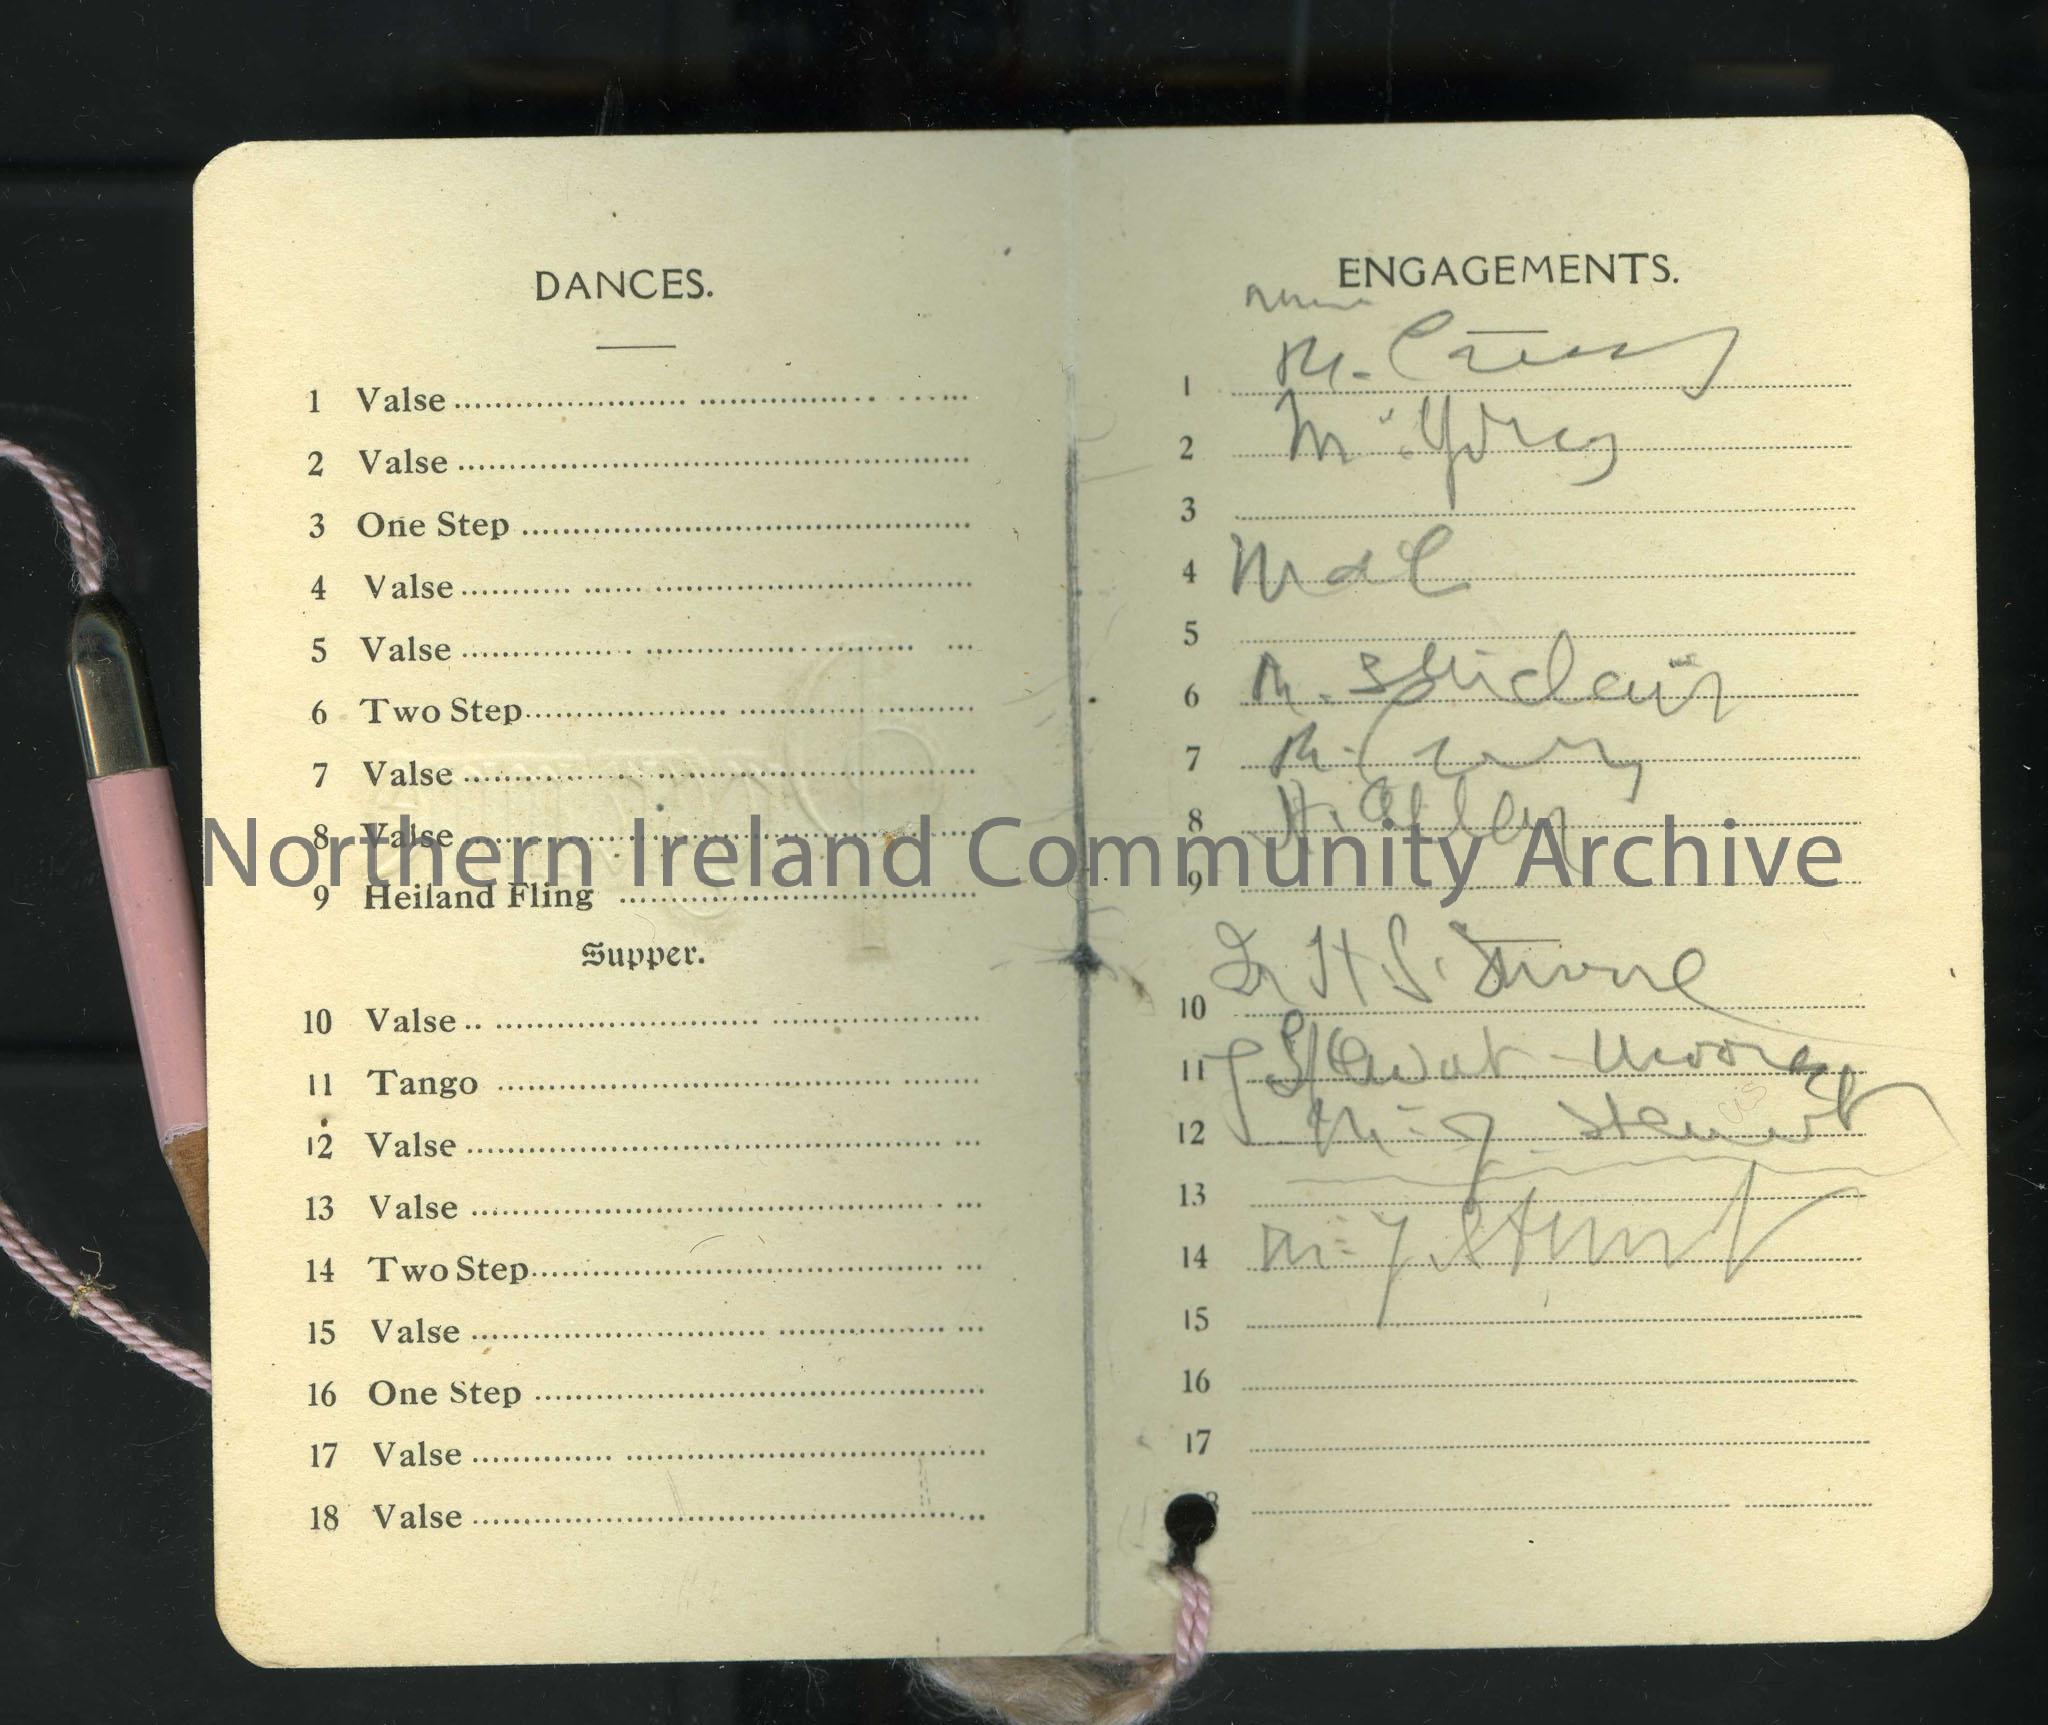 DANCES.
1 Valse
2 Valse
3 One Step
4 Valse
5 Valse
6 Two Step
7 Valse
8 Valse
9 Heiland Fling
Supper.
10 Valse
11 Tango
12 Valse
13 Valse
14 Two Step
15 Valse
16 One Step
17 Valse
18 Valse
ENGAGEMENTS.
1 M.
2
3
4
5
6 M. Sinclair
7 M.
8 H.
9
10 Dr H. S.
11 J Stewart-Moore
12 J. Stewart
13
14 J Stewart
15
16
17
8
Northern Ireland Community Archive